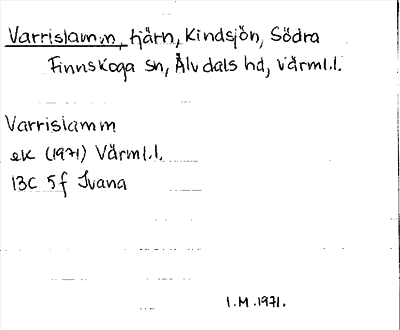 Varrislamm, tjärn, Kindsjön, Södra
Finnskoga sn, Älvdals hd, Värml.l.
Varrislamm
ek (1971) Värml.l.
13C 5f Ivana
I.M.1971.